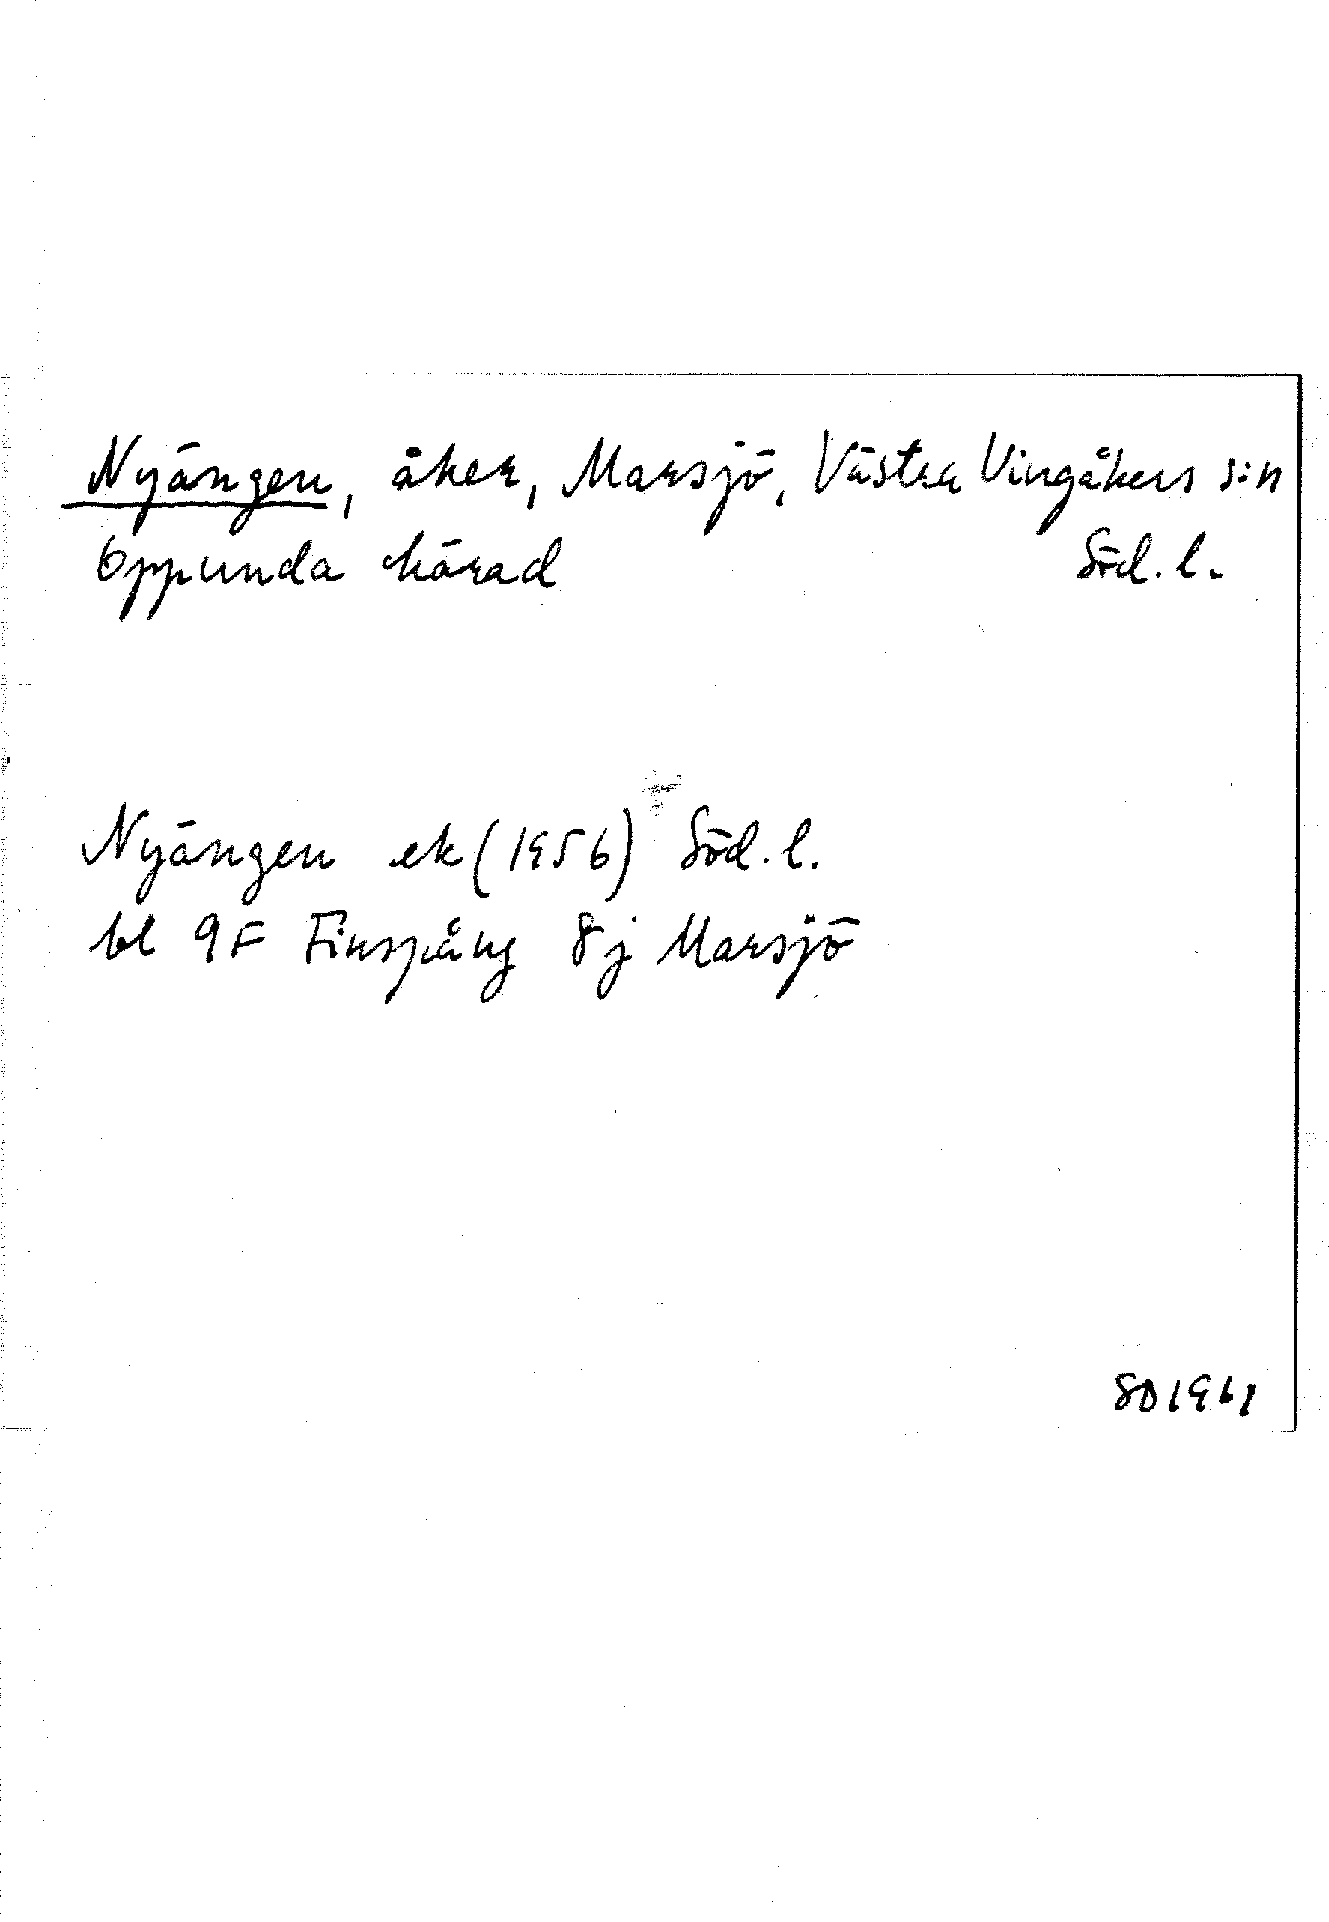 Nyängen, åker, Marsjö, Västra Vingåkers s:n
Oppunda härad Söd. l.
Nyängen ek (1956) Söd. l.
bl 9F Finspång 8j Marsjö